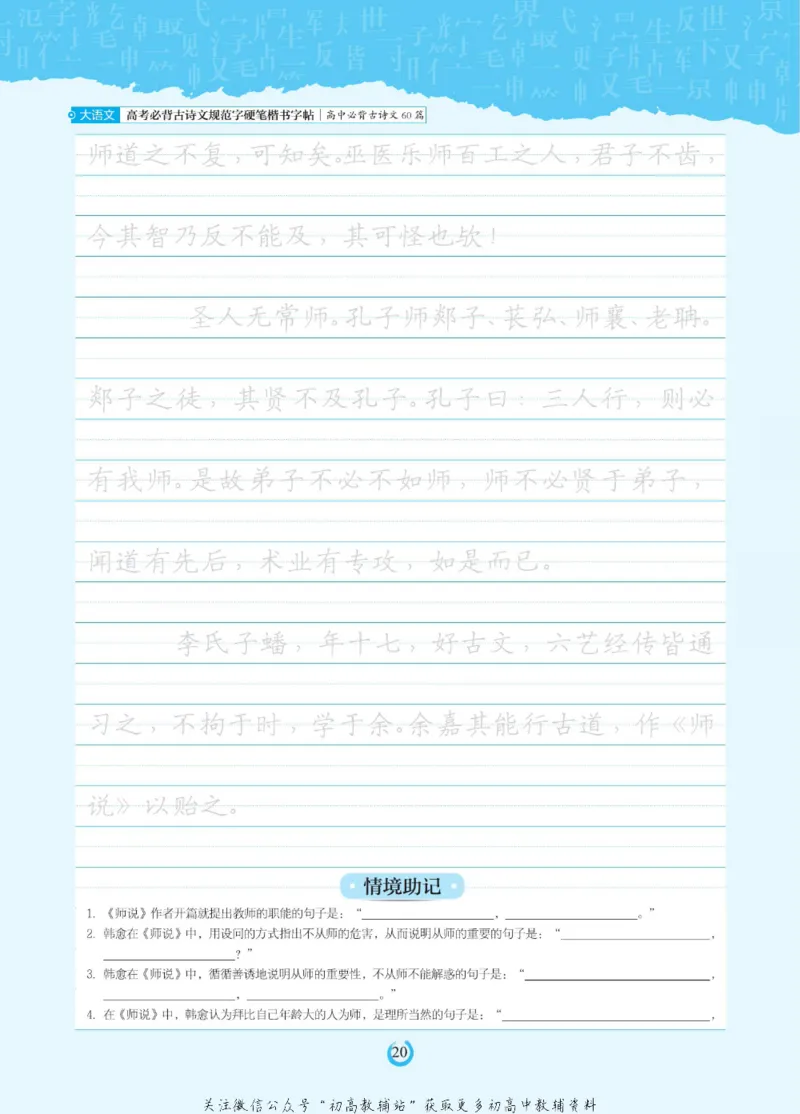 大语文 高考必背古诗文规范字硬笔楷书字帖 | 高中必背古诗文60篇
师道之不复，可知矣。巫医乐师百工之人，君子不齿，
今其智乃反不能及，其可怪也欤！
圣人无常师。孔子师郯子、苌弘、师襄、老聃。
郯子之徒，其贤不及孔子。孔子曰：三人行，则必
有我师。是故弟子不必不如师，师不必贤于弟子，
闻道有先后，术业有专攻，如是而已。
李氏子蟠，年十七，好古文，六艺经传皆通
习之，不拘于时，学于余。余嘉其能行古道，作《师
说》以贻之。
情境助记
1. 《师说》作者开篇就提出教师的职能的句子是：“____________，____________。”
2. 韩愈在《师说》中，用设问的方式指出不从师的危害，从而说明从师的重要的句子是：“____________，
____________？”
3. 韩愈在《师说》中，循循善诱地说明从师的重要性，不从师不能解惑的句子是：“____________，
____________，____________。”
4. 在《师说》中，韩愈认为拜比自己年龄大的人为师，是理所当然的句子是：“____________，
20
关注微信公众号“初高教辅站”获取更多初高中教辅资料